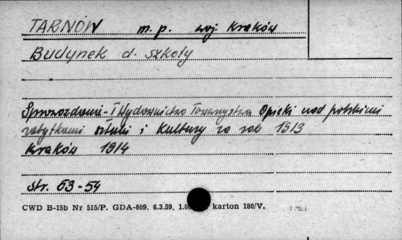 TARNÓW m.p. woj. Kraków
Budynek d. szkoły
Sprawozdanie i Wydawnictwo Towarzystwa Opieki nad polskimi
zabytkami sztuki i kultury za rok 1913
Kraków 1914
str. 53-54
CWD B-15b Nr 515/P. GDA-809. 6.3.59. karton 180/V.